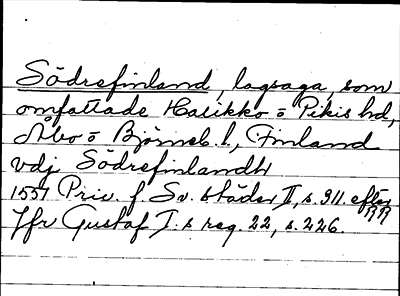 Södrefinland, lagsaga, som
omfattade Halikko o Pikis hd,
Åbo o Björneb. l., Finland
vdj Södrefinlandh
1557 Priv. f. Sv. städer II, s. 911. efter RR
Jfr Gustaf I:s reg. 22, s. 226.